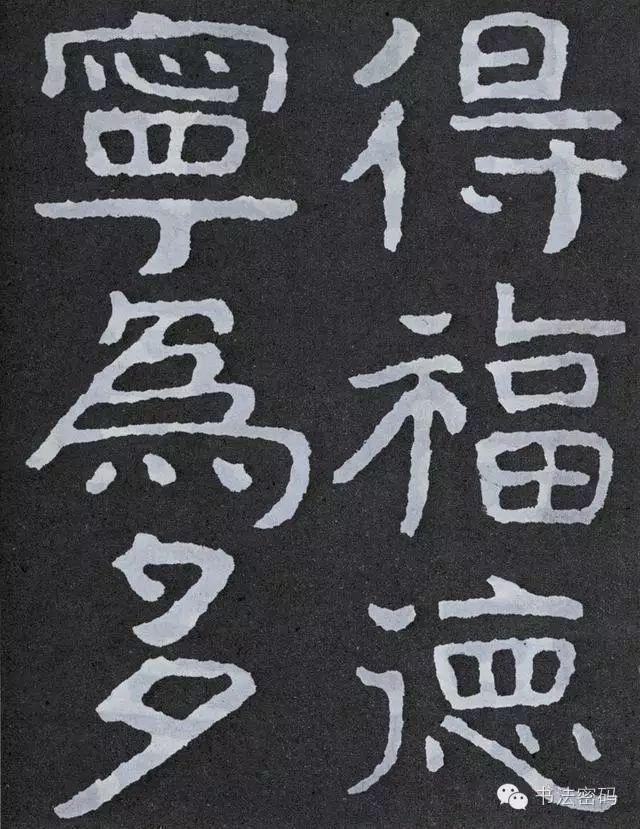 得福德
寧為多
书法密码